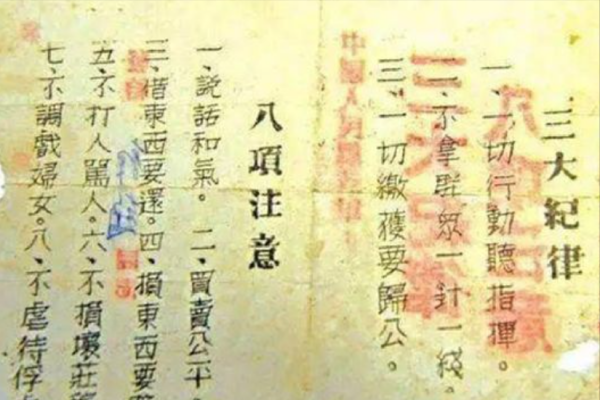 三大紀律
一、一切行動聽指揮。
二、不拿群眾一針一綫。
三、一切繳獲要歸公。
八項注意
一、説話和氣。二、買賣公平。
三、借東西要還。四、損東西要
五、不打人罵人。六、不損壞莊
七、不調戲婦女八、不虐待俘